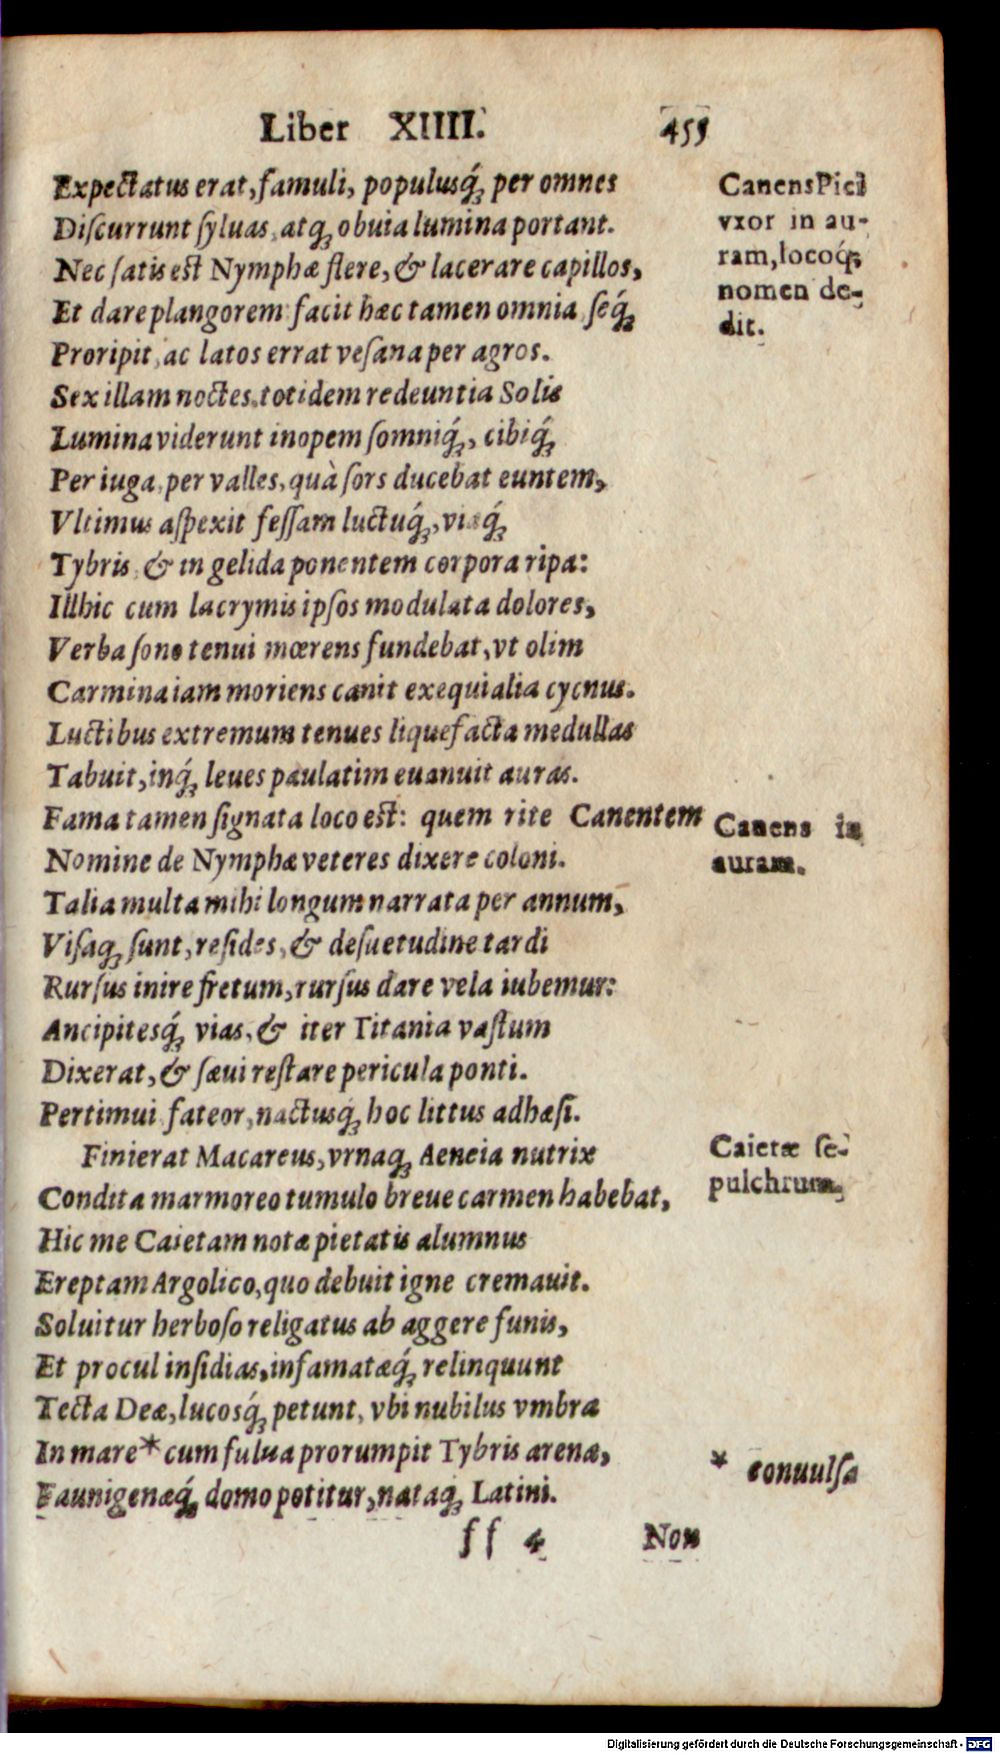 Liber XIIII. 455
Expectatus erat, famuli, populusq́; per omnes
Discurrunt syluas, atq; obuia lumina portant.
Nec satis est Nymphæ flere, & lacerare capillos,
Et dare plangorem facit hæc tamen omnia, seq́;
Proripit, ac latos errat vesana per agros.
Sex illam noctes, totidem redeuntia Solis
Lumina viderunt inopem somniq́;, cibiq́;
Per iuga, per valles, quà sors ducebat euntem,
Vltimus aspexit fessam luctuq́;, viaq́;
Tybris, & in gelida ponentem corpora ripa:
Illhic cum lacrymis ipsos modulata dolores,
Verba sono tenui mœrens fundebat, vt olim
Carmina iam moriens canit exequialia cycnus.
Luctibus extremum tenues liquefacta medullas
Tabuit, inq́; leues paulatim euanuit auras.
Fama tamen signata loco est: quem rite Canentem
Nomine de Nymphæ veteres dixere coloni.
Talia multa mihi longum narrata per annum,
Visaq; sunt, resides, & desuetudine tardi
Rursus inire fretum, rursus dare vela iubemur:
Ancipitesq́; vias, & iter Titania vastum
Dixerat, & sæui restare pericula ponti.
Pertimui fateor, nactusq́; hoc littus adhæsi.
Finierat Macareus, vrnaq; Aeneia nutrix
Condita marmoreo tumulo breue carmen habebat,
Hic me Caietam notæ pietatis alumnus
Ereptam Argolico, quo debuit igne cremauit.
Soluitur herboso religatus ab aggere funis,
Et procul insidias, infamatæq́; relinquunt
Tecta Deæ, lucosq́; petunt, vbi nubilus vmbra
In mare * cum fulua prorumpit Tybris arena,
Faunigenæq́; domo potitur, nataq; Latini.
ff 4 Non
Canens Pici
vxor in au-
ram, locoq́;
nomen de-
dit.
Canens in
auram.
Caietæ se-
pulchrum.
* conuulsa
Digitalisierung gefördert durch die Deutsche Forschungsgemeinschaft - DFG